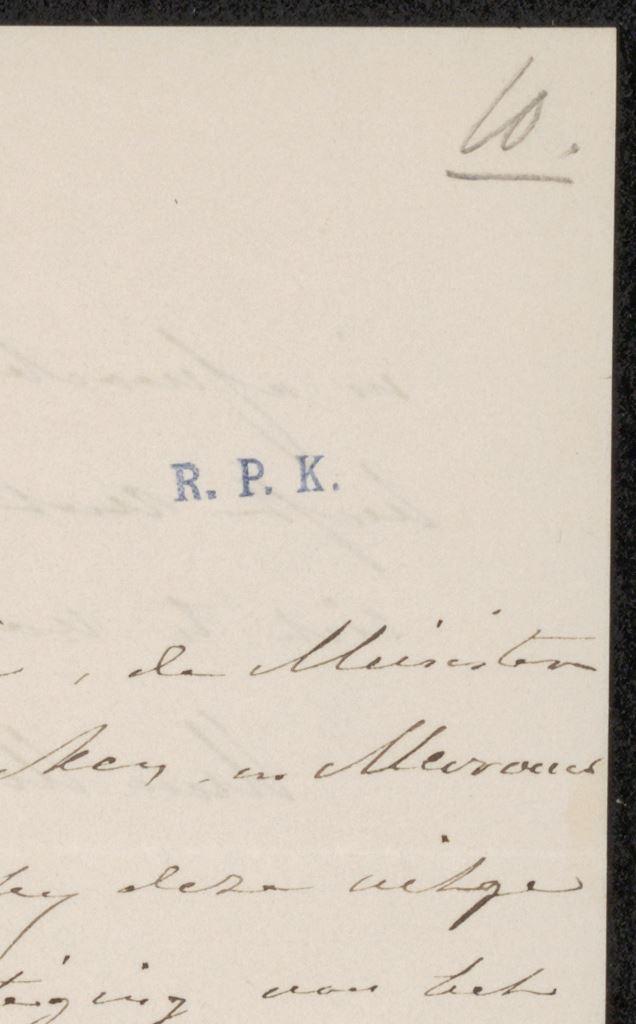 10.
R. P. K.
, de Minister
ken en Mevrouw
by deze uitge
tiging van het